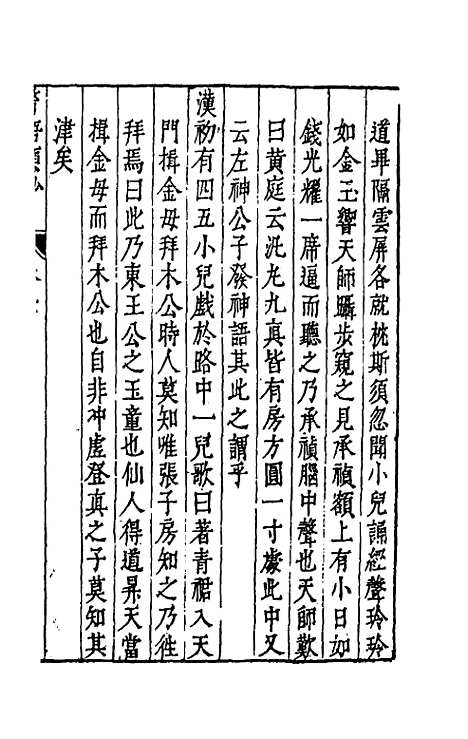 道畢隔雲屏各就枕斯須忽聞小兒誦經聲玲玲
如金玉響天師躡步窺之見承禎額上有小日如
錢光耀一席逼而聽之乃承禎腦中聲也天師歎
曰黄庭云泥丸九真皆有房方圓一寸處此中又
云左神公子發神語其此之謂乎
漢初有四五小兒戲於路中一兒歌曰著青裙入天
門揖金母拜木公時人莫知唯張子房知之乃徃
拜焉曰此乃東王公之玉童也仙人得道昇天當
揖金母而拜木公也自非冲虛登真之子莫知其
津矣